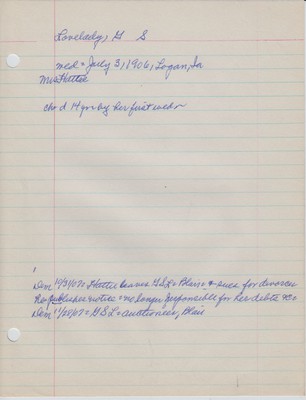 Lovelady, G S
med - July 3, 1906, Logan, Ia
Mrs Hattie
ch - d 14 yrs by her first
Dem 10/31/07 = Hattie leaves GSL = Blair = & sues for divorce
He publishes notice = no longer responsible for her debts &c
Dem 11/28/07 = G S L = auctioneer, Blair